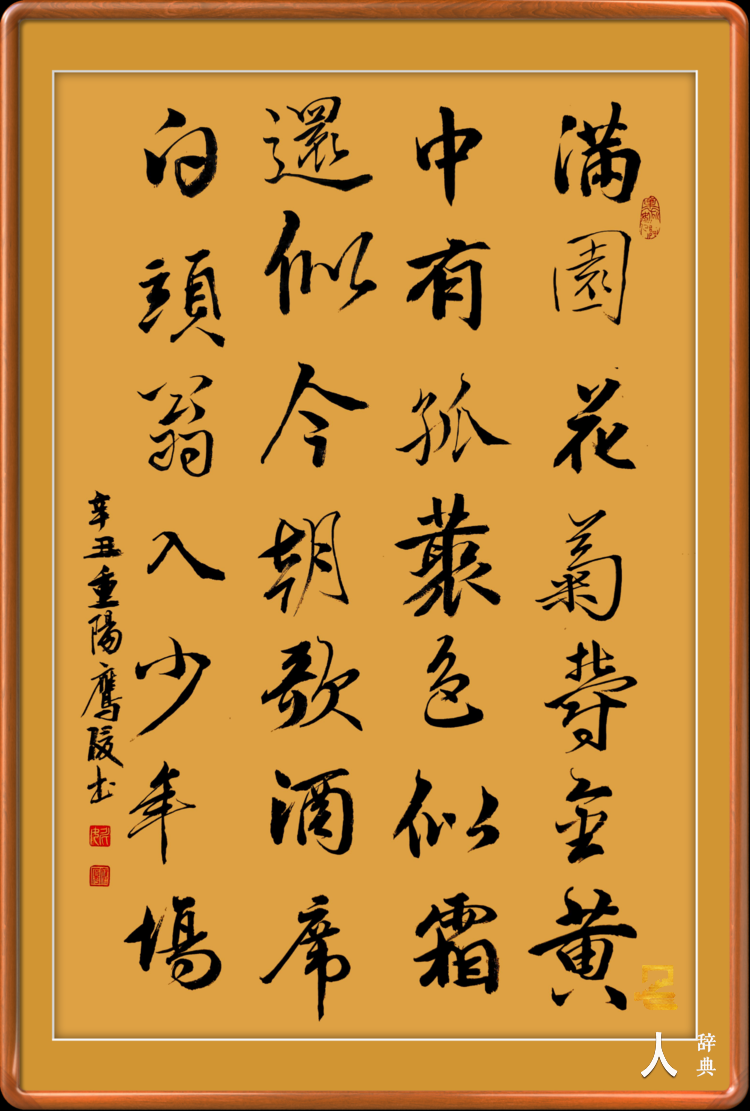 满園花菊欝金黄
中有孤藂色似霜
還似今朝歌酒席
白頭翁入少年場
辛丑重陽鷹书
人
辞典